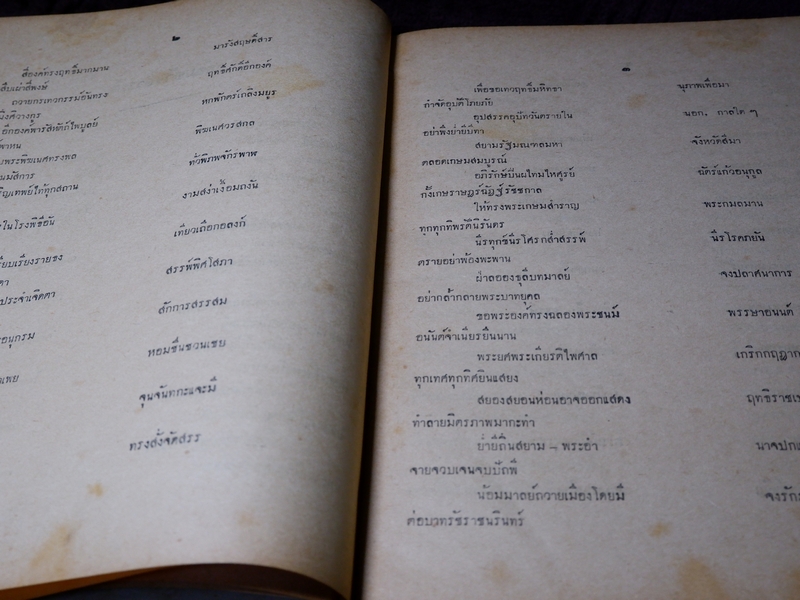 ๒
สี่องค์ทรงฤทธิ์มากมาน มารังสฤษดิ์สาร
สืบเผ่าสี่พงษ์
ถวายกรเทวกรรม์อันทรง ฤทธิ์ศักดิ์อีกองค์
อีกองค์พารสิทัตถ์ไพบูลย์ หกพักตร์เถลิงมยูร
พิฆเนศวรสกล
พระพิฆเนศทรงพล ทั่วพิภพจักรพาฬ
เทพย์ไท้ทุกสถาน งามสง่าเงื่อมถงัน
ในโรงพิธีอัน เที่ยวเถือกอลงก์
เรียบเรียงรายของ สรรพ์พิศโสภา
ประจำเจิดตา สักการสรรสม
อนุกรม หอมชื่นชวนเชย
จุนจันทกะแจะมี
ทรงสั่งจัดสรร
๓
เพื่อขอเทวฤทธิ์มหิทธา นุภาพเพื่อมา
กำจัดอุบัติไภยภัย
อุปสรรคอุบัทวันตรายใน นอก. กาลใด ๆ
อย่าพึงย่ำยีบีฑา
สยามรัฐมณฑลมหา จังหวัดสีมา
ตลอดเกษมสมบูรณ์
อภิรักษ์ปิ่นไผทมไหศูรย์ ฉัตร์แก้วอนุกูล
กั้งเกษราษฎร์ฉัฏฐ์รัชชกาล
ให้ทรงพระเกษมสำราญ พระกมลมาน
ทุกทุกทิพรัตินิรันตร
นิรทุกข์นิรโศรกล้ำสรรพ์ นิรโรคภยัน
ตรายอย่าพ้องพะพาน
ฝ่าลอองธุลีบทมาลย์ จงปลาศนาการ
อย่ากล้ำกลายพระบาทยุคล
ขอพระองค์ทรงฉลองพระชนม์ พรรษาอนนต์
อนันต์จำเนียรยืนนาน
พระยศพระเกียรติไพศาล เกริกกฤฎาภ
ทุกเทศทุกทิศยินแสยง
สยองสยอนห่อนอาจออกแสดง ฤทธิราช
ทำลายมิตรภาพมากะทำ
ย่ำยีถิ่นสยาม – พระยำ นาจปก
จายจวบเจนจบปัถพี
น้อมมาลย์ถวายเมืองโดยมี จงรัก
ต่อบาทรัชราชนรินทร์